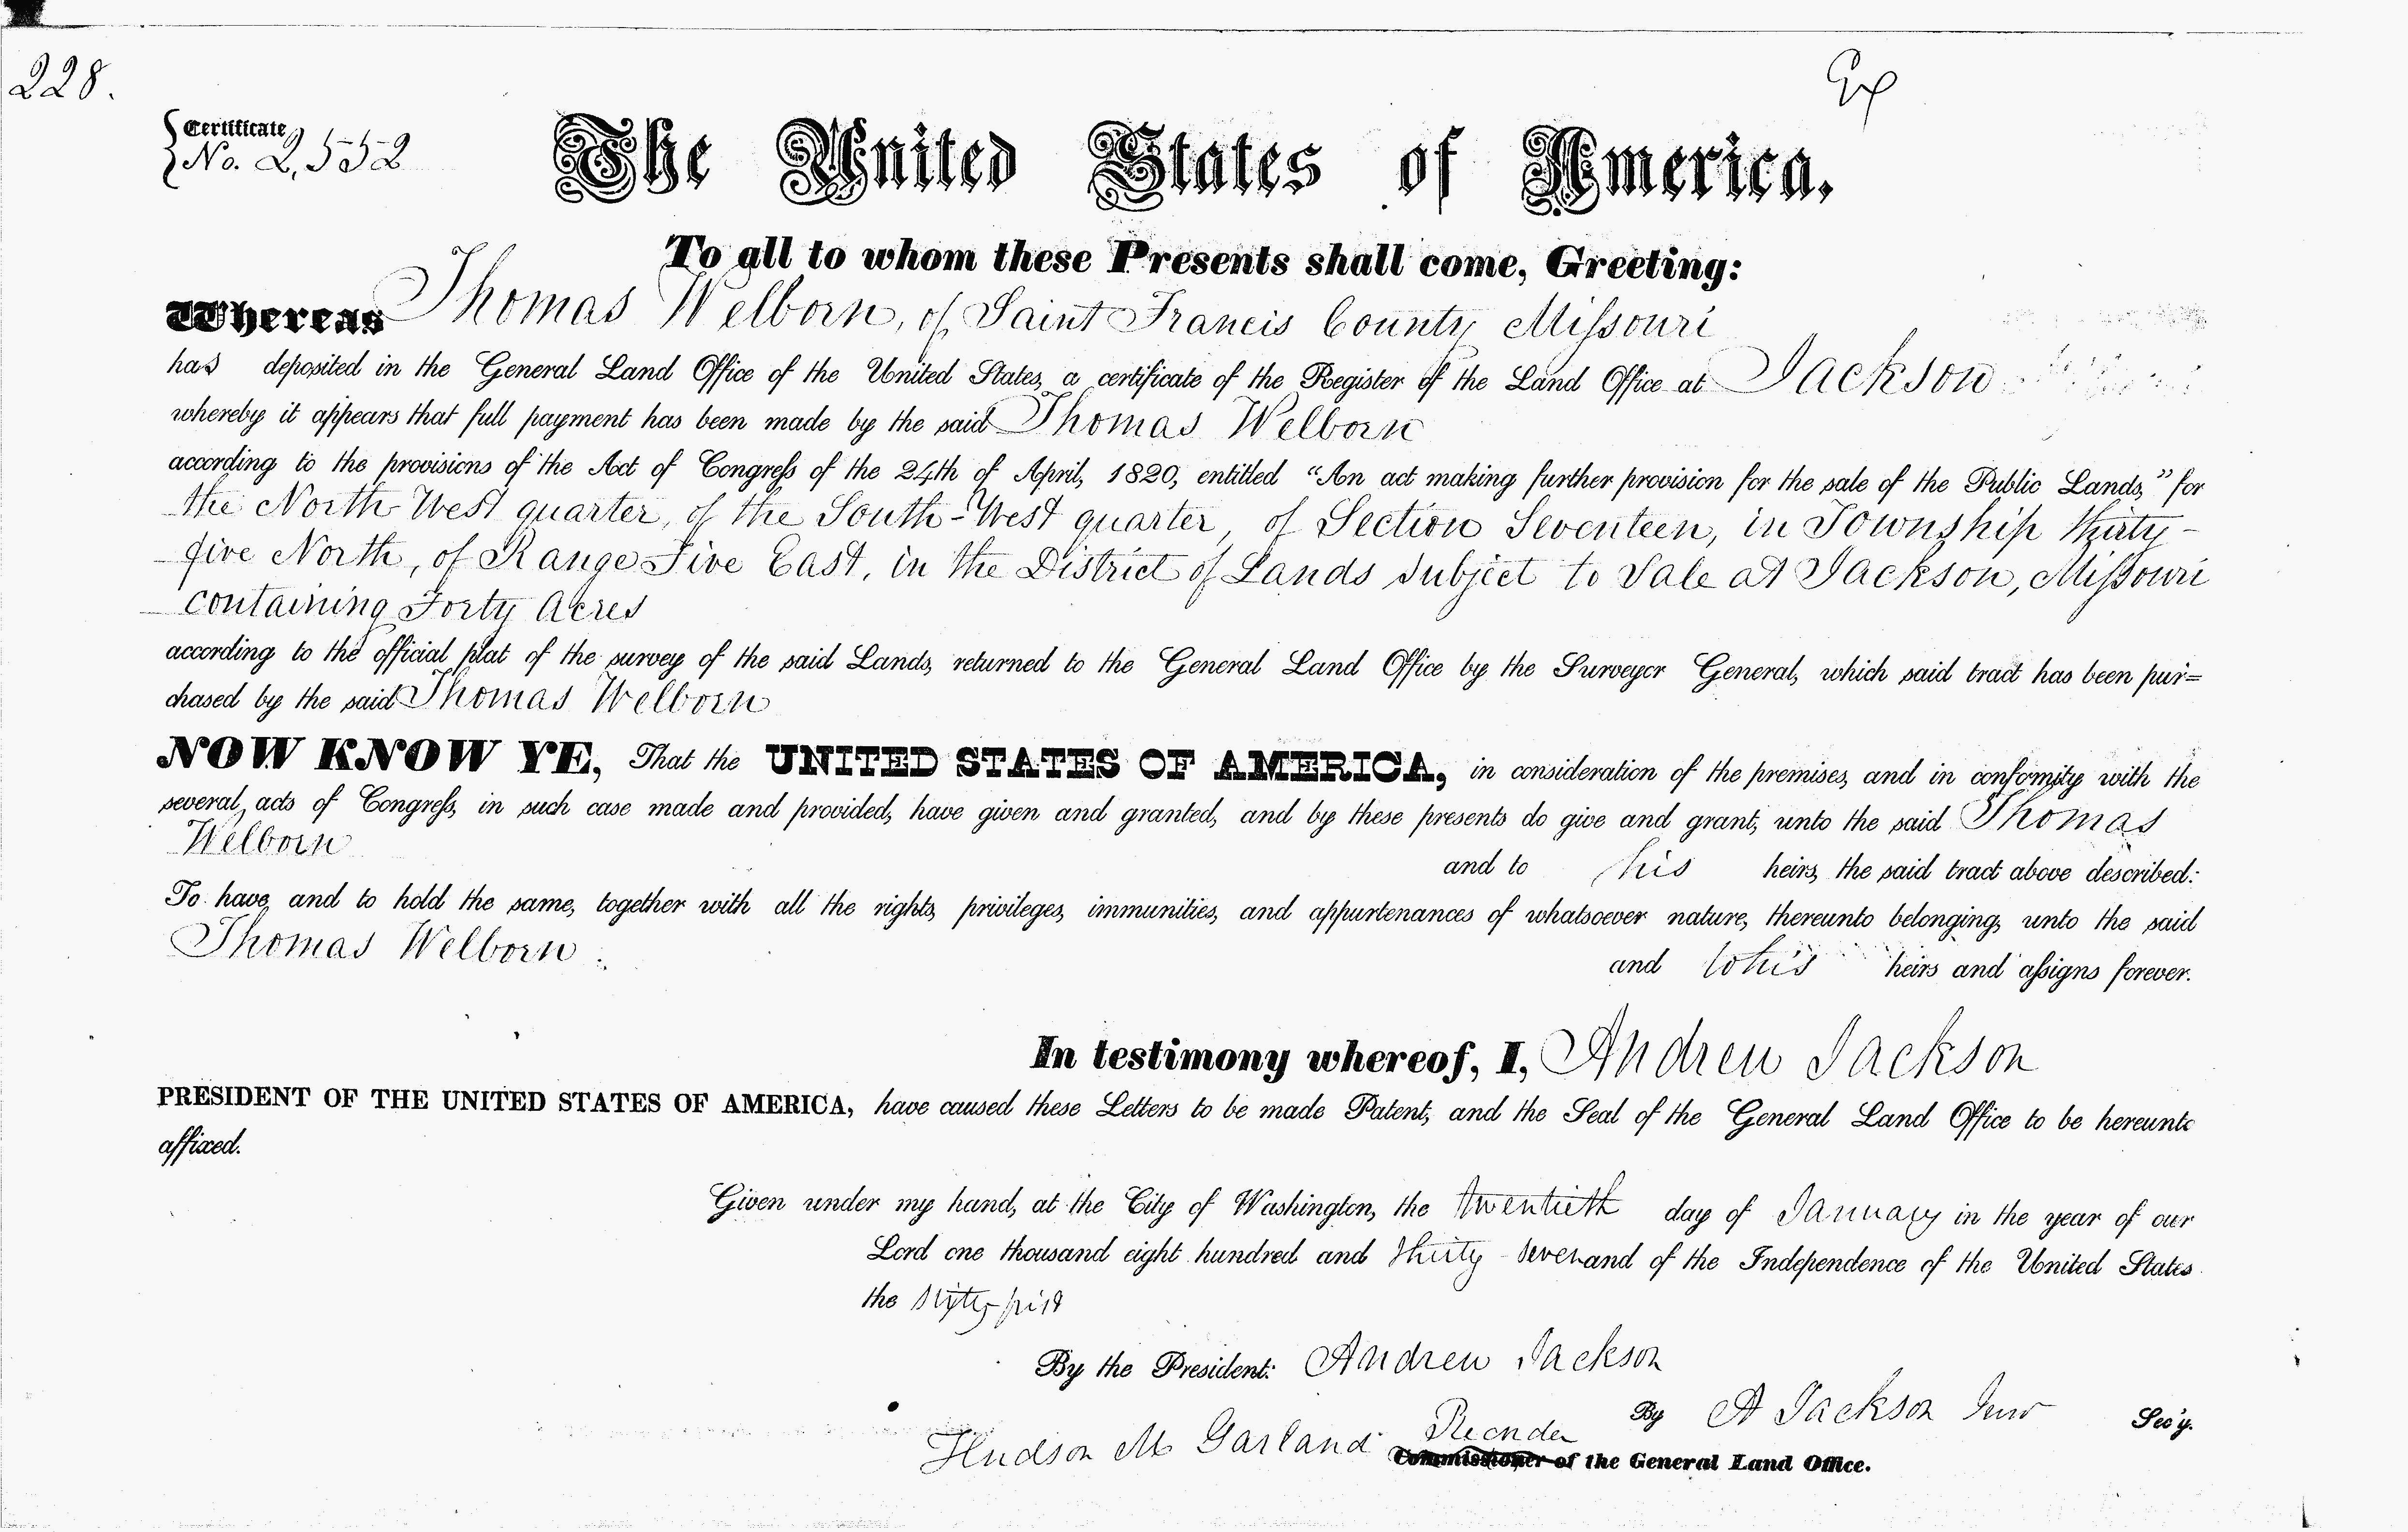 228.
Ex
Certificate
No. 2,552
The United States of America,
To all to whom these Presents shall come, Greeting:
Whereas Thomas Welborn, of Saint Francis County Missouri
has deposited in the General Land Office of the United States, a certificate of the Register of the Land Office at Jackson
whereby it appears that full payment has been made by the said Thomas Welborn
according to the provisions of the Act of Congress of the 24th of April, 1820, entitled "An act making further provision for the sale of the Public Lands," for
the North West quarter, of the South-West quarter, of Section Seventeen, in Township thirty-
five North, of Range Five East, in the District of Lands subject to Sale at Jackson, Missouri
containing Forty Acres
according to the official plat of the survey of the said Lands, returned to the General Land Office by the Surveyor General, which said tract has been pur=
chased by the said Thomas Welborn
NOW KNOW YE, That the UNITED STATES OF AMERICA, in consideration of the premises, and in conformity with the
several acts of Congress, in such case made and provided, have given and granted, and by these presents do give and grant, unto the said Thomas
Welborn
and to his heirs, the said tract above described:
To have and to hold the same, together with all the rights, privileges, immunities, and appurtenances of whatsoever nature, thereunto belonging, unto the said
Thomas Welborn
and to his heirs and assigns forever.
In testimony whereof, I, Andrew Jackson
PRESIDENT OF THE UNITED STATES OF AMERICA, have caused these Letters to be made Patent, and the Seal of the General Land Office to be hereunto
affixed.
Given under my hand, at the City of Washington, the twentieth day of January in the year of our
Lord one thousand eight hundred and thirty-seven and of the Independence of the United States
the sixty-first
By the President: Andrew Jackson
By A Jackson Junr Sec'y.
Hudson M Garland Recorder
Commissioner of the General Land Office.